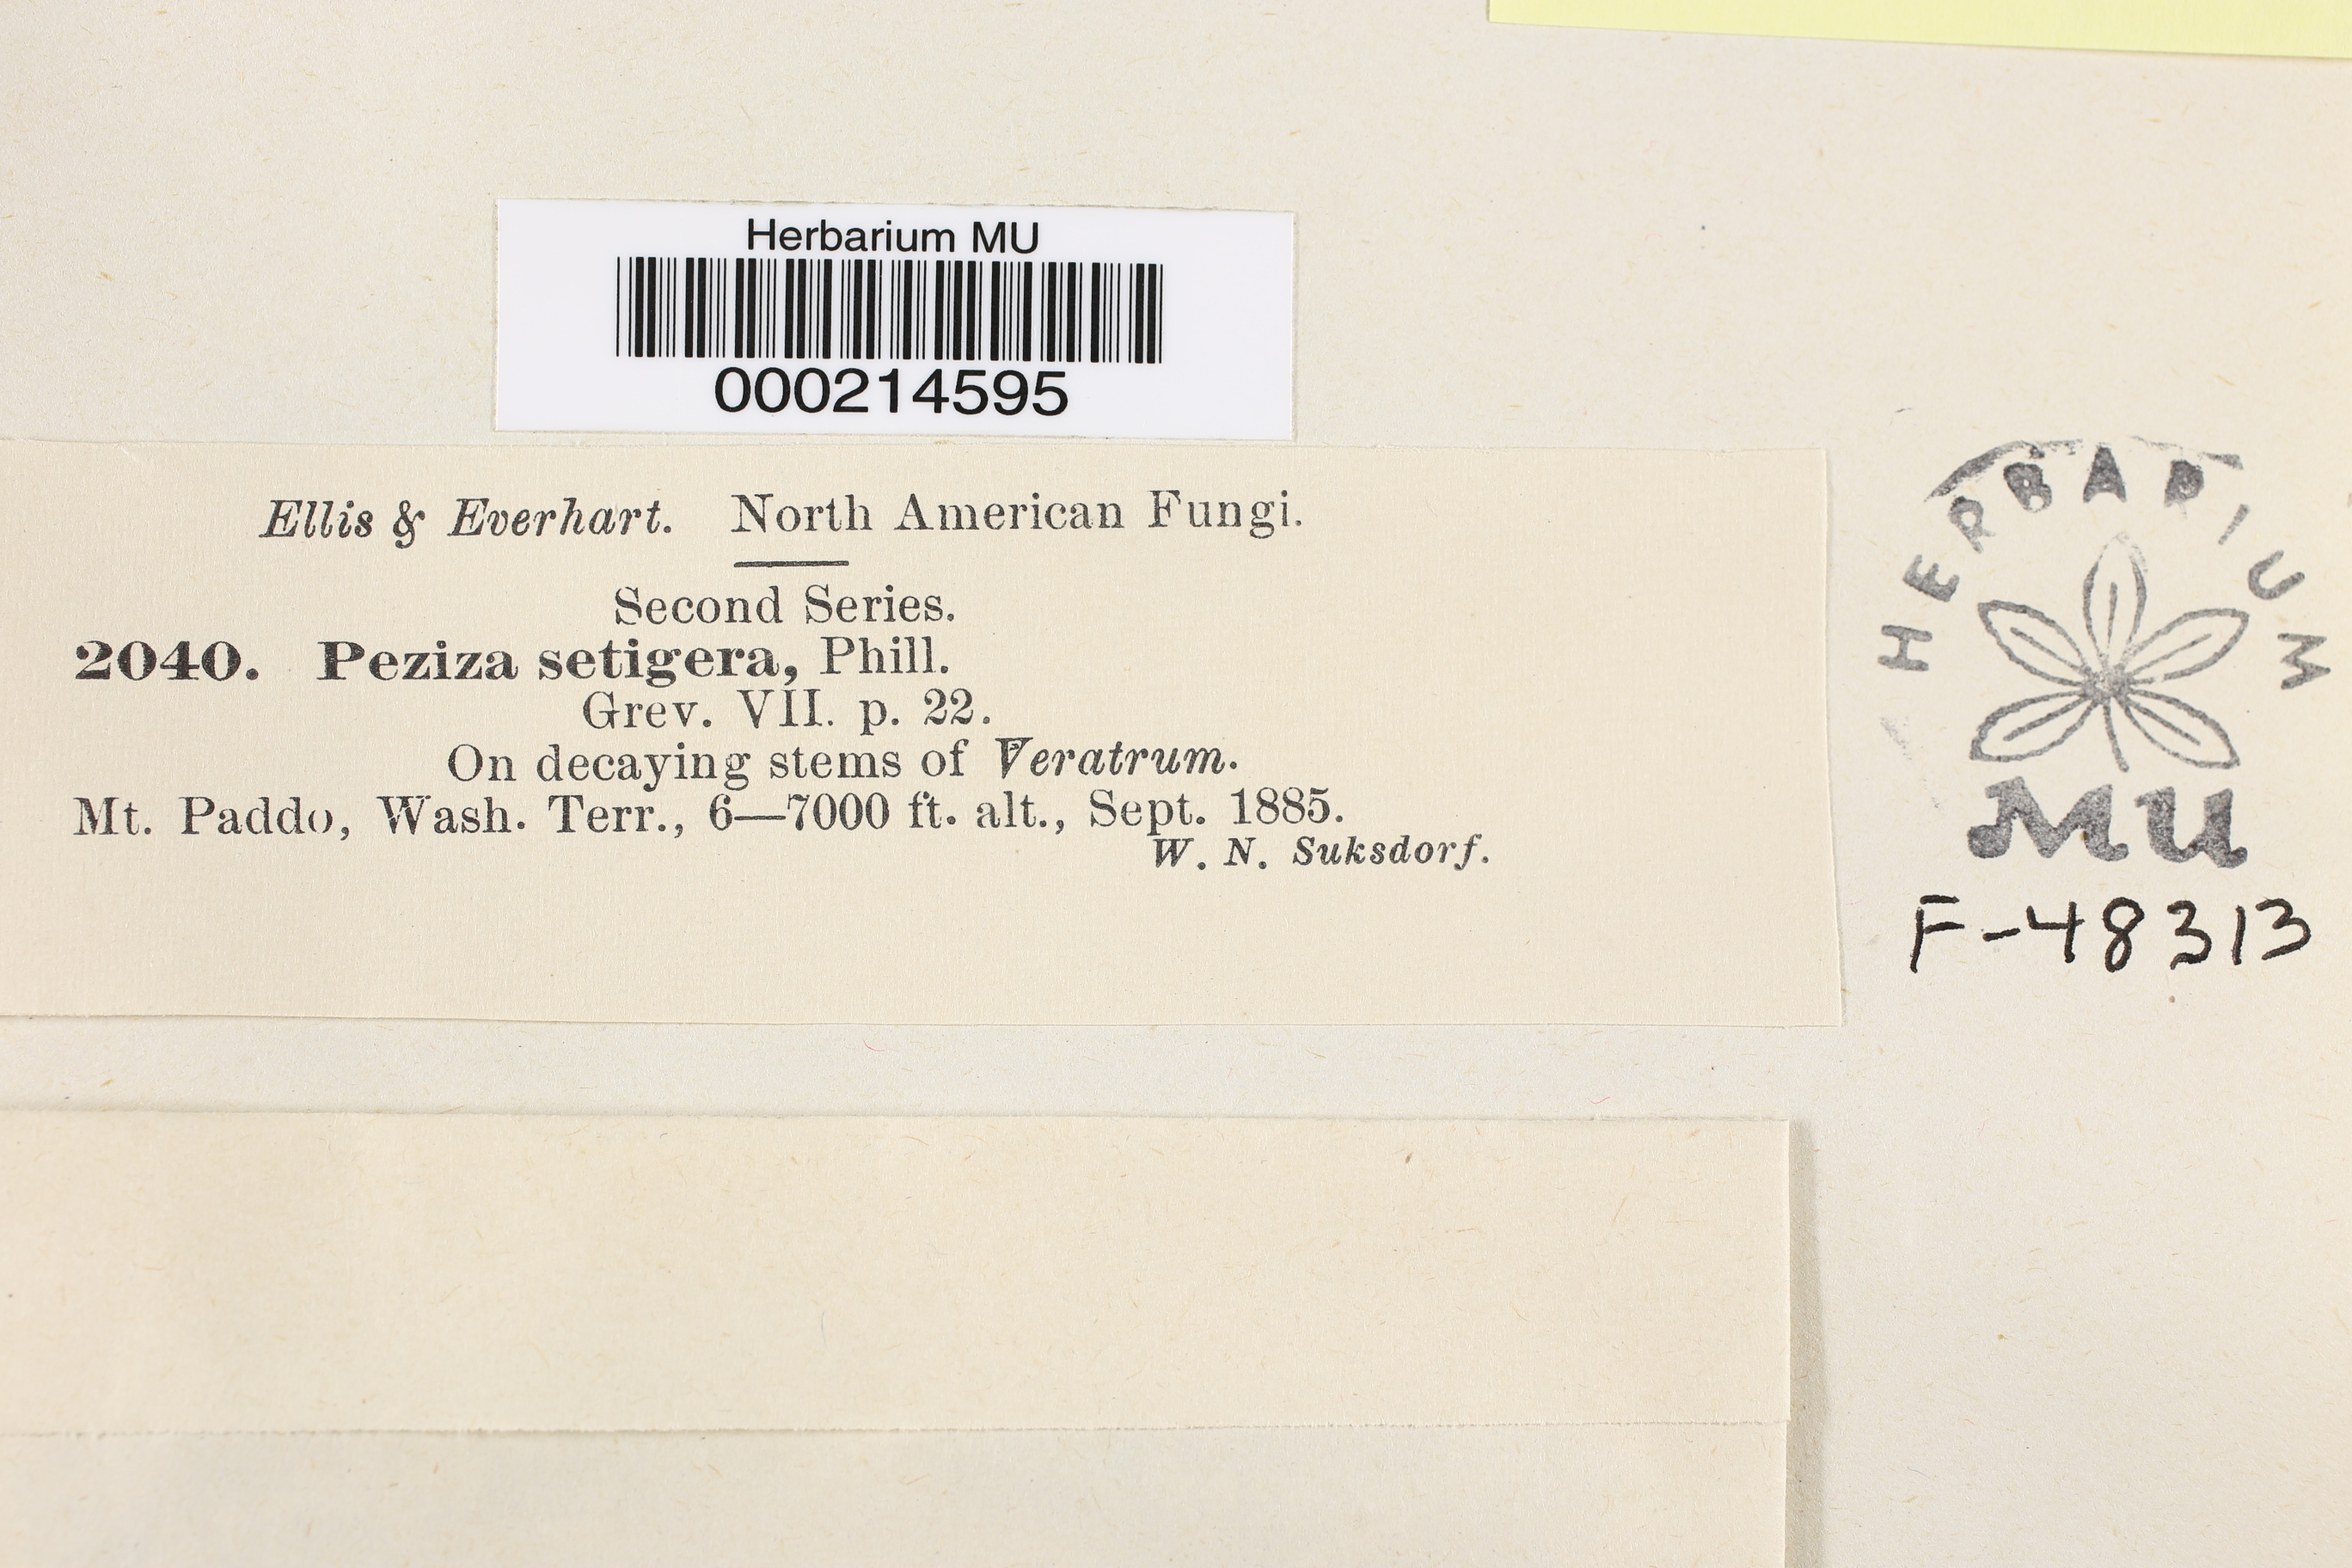 Herbarium MU
000214595
Ellis & Everhart. North American Fungi.
Second Series.
2040. Peziza setigera, Phill.
Grev. VII. p. 22.
On decaying stems of Veratrum.
Mt. Paddo, Wash. Terr., 6—7000 ft. alt., Sept. 1885.
W. N. Suksdorf.
HERBARIUM
MU
F-48313